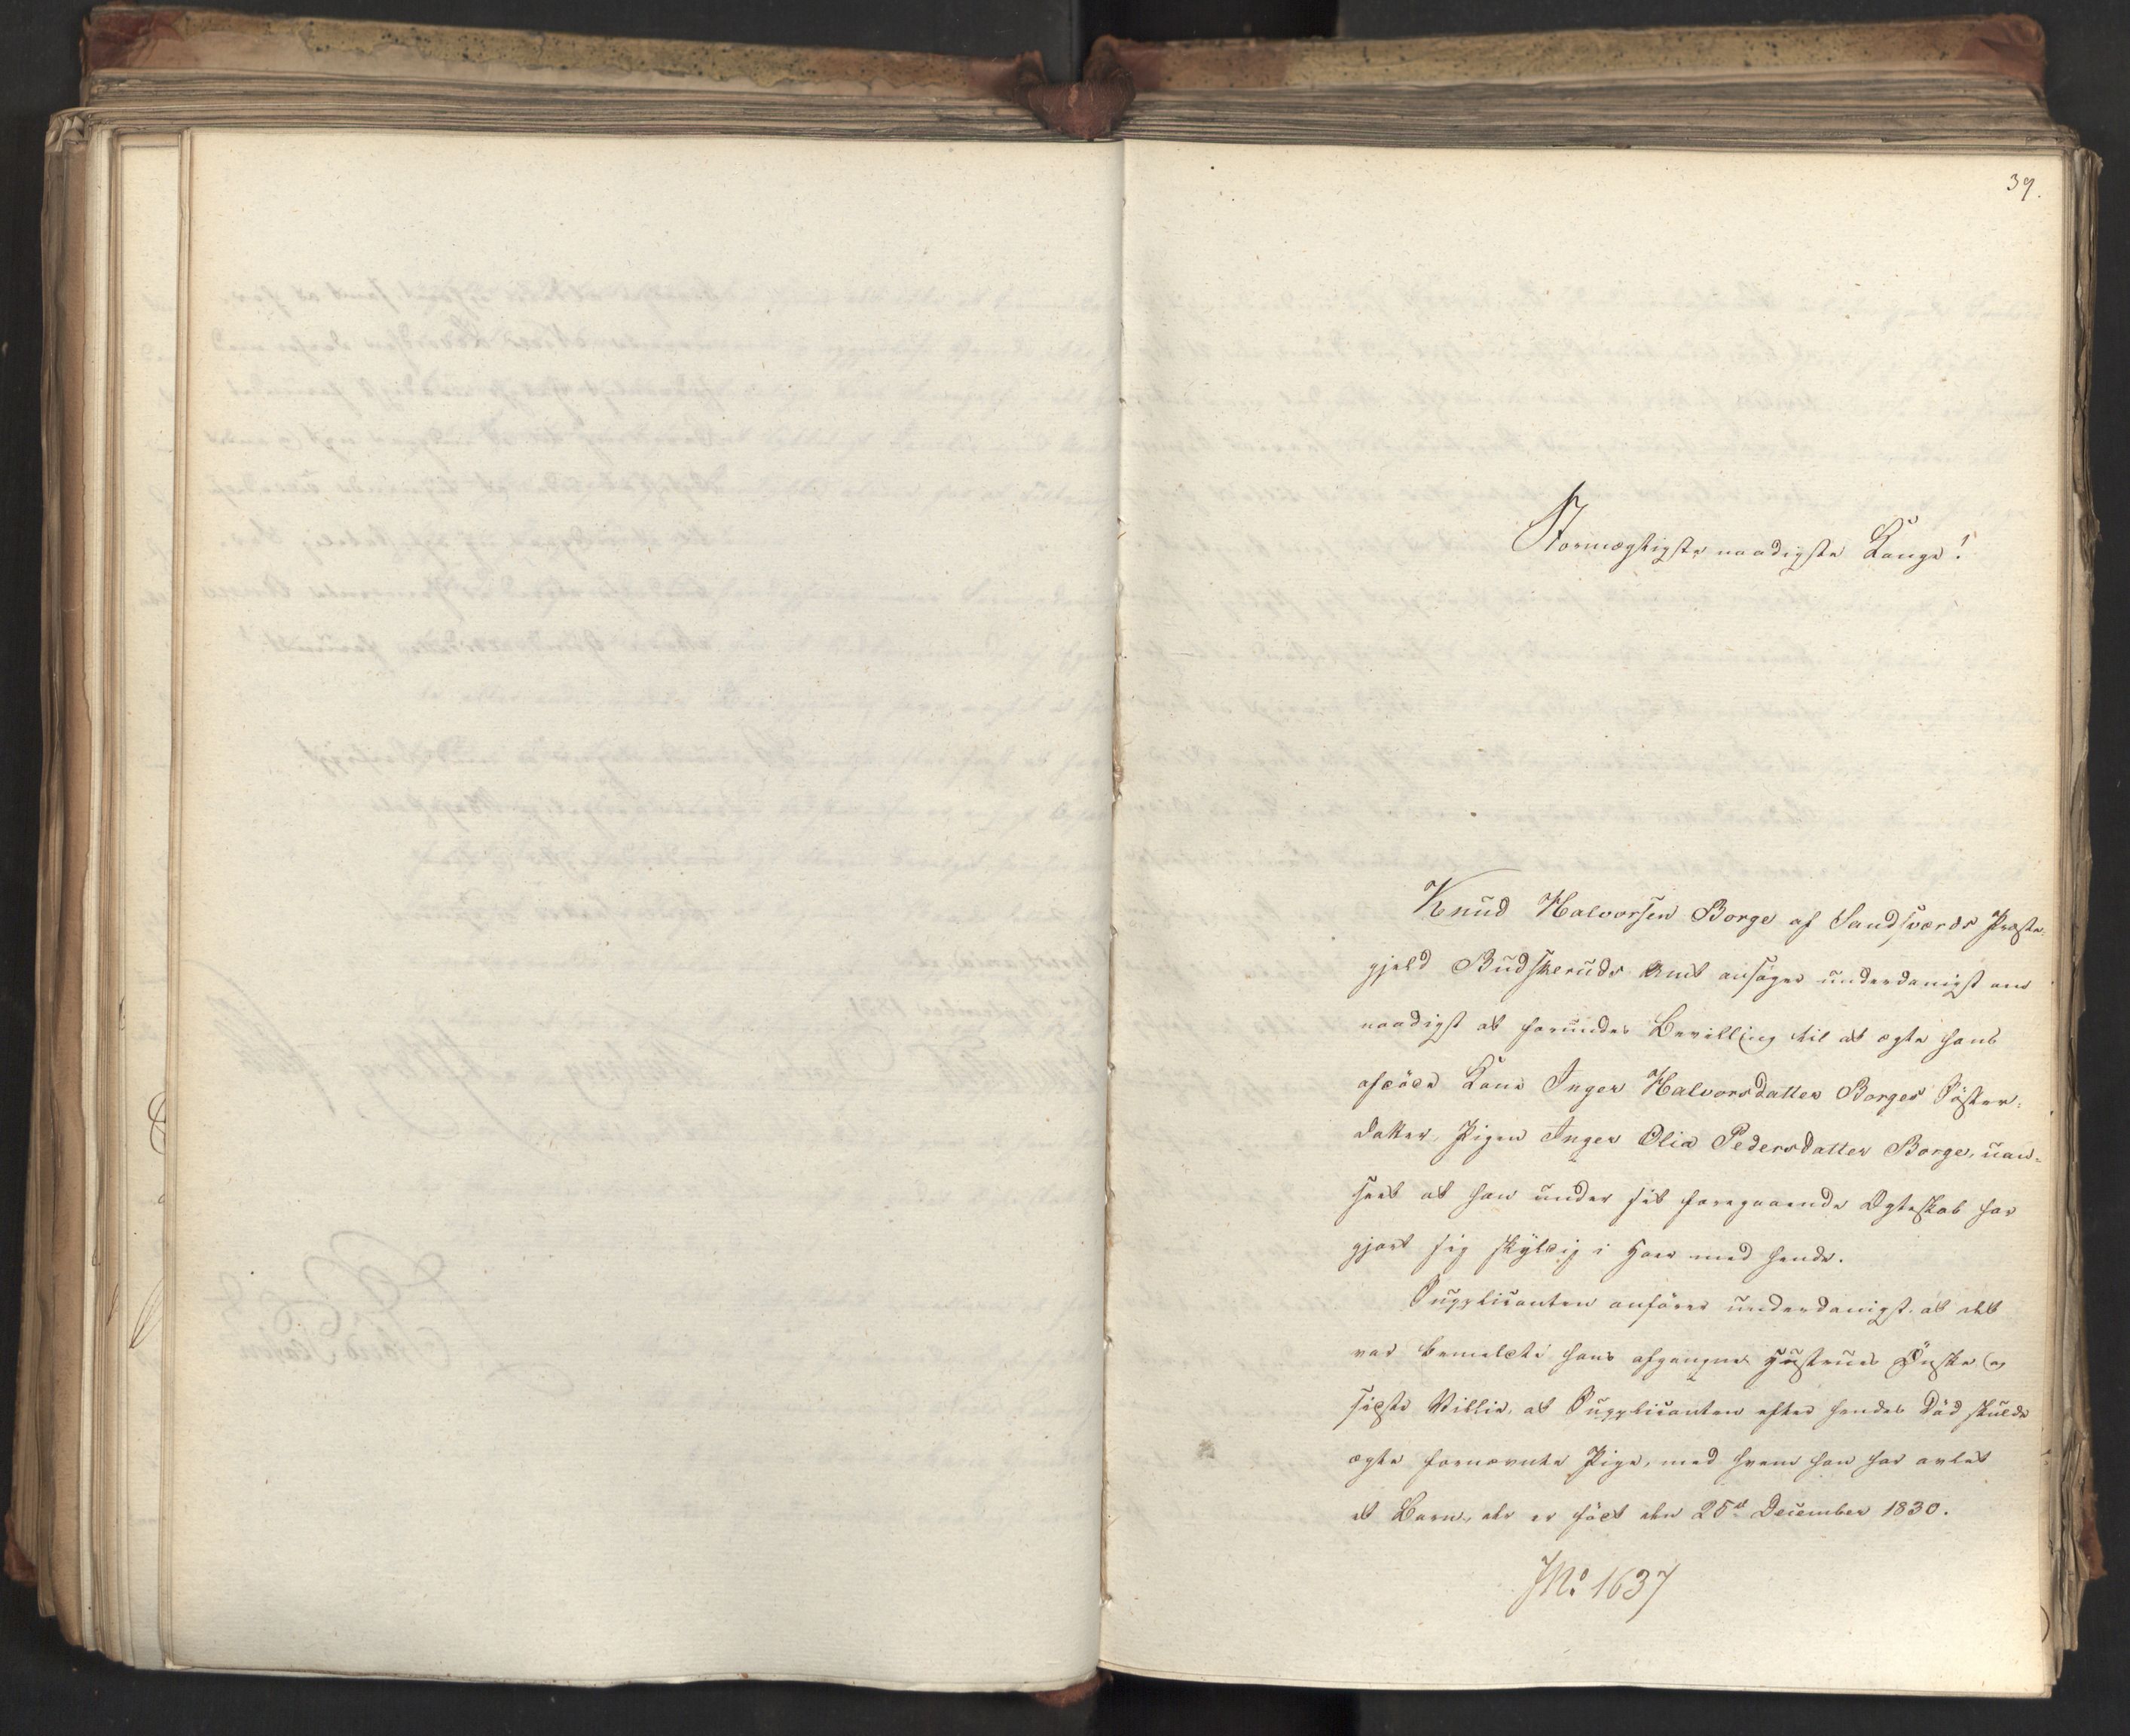 39.
Stormægtigste naadigste Konge!
Knud Halvorsen Borge af Sandsværds Præste-
gjeld Budskeruds Amt ansøger underdanigst om
naadigst at forundes Bevilling til at ægte hans
afdöde Kone Inger Halvorsdatter Borges Söster-
datter, Pigen Inger Olia Pedersdatter Borge, uan-
seet at han under sit foregaaende Ægteskab har
gjort sig skyldig i Hoer med hende.
Supplicanten anförer underdanigst at det
var bemeldte hans afgangne Hustrues Önske og
sidste Villie, at Supplicanten efter hendes Död skulde
ægte fornævnte Pige, med hvem han har avlet
et Barn, der er födt den 25de December 1830.
JNo 1637